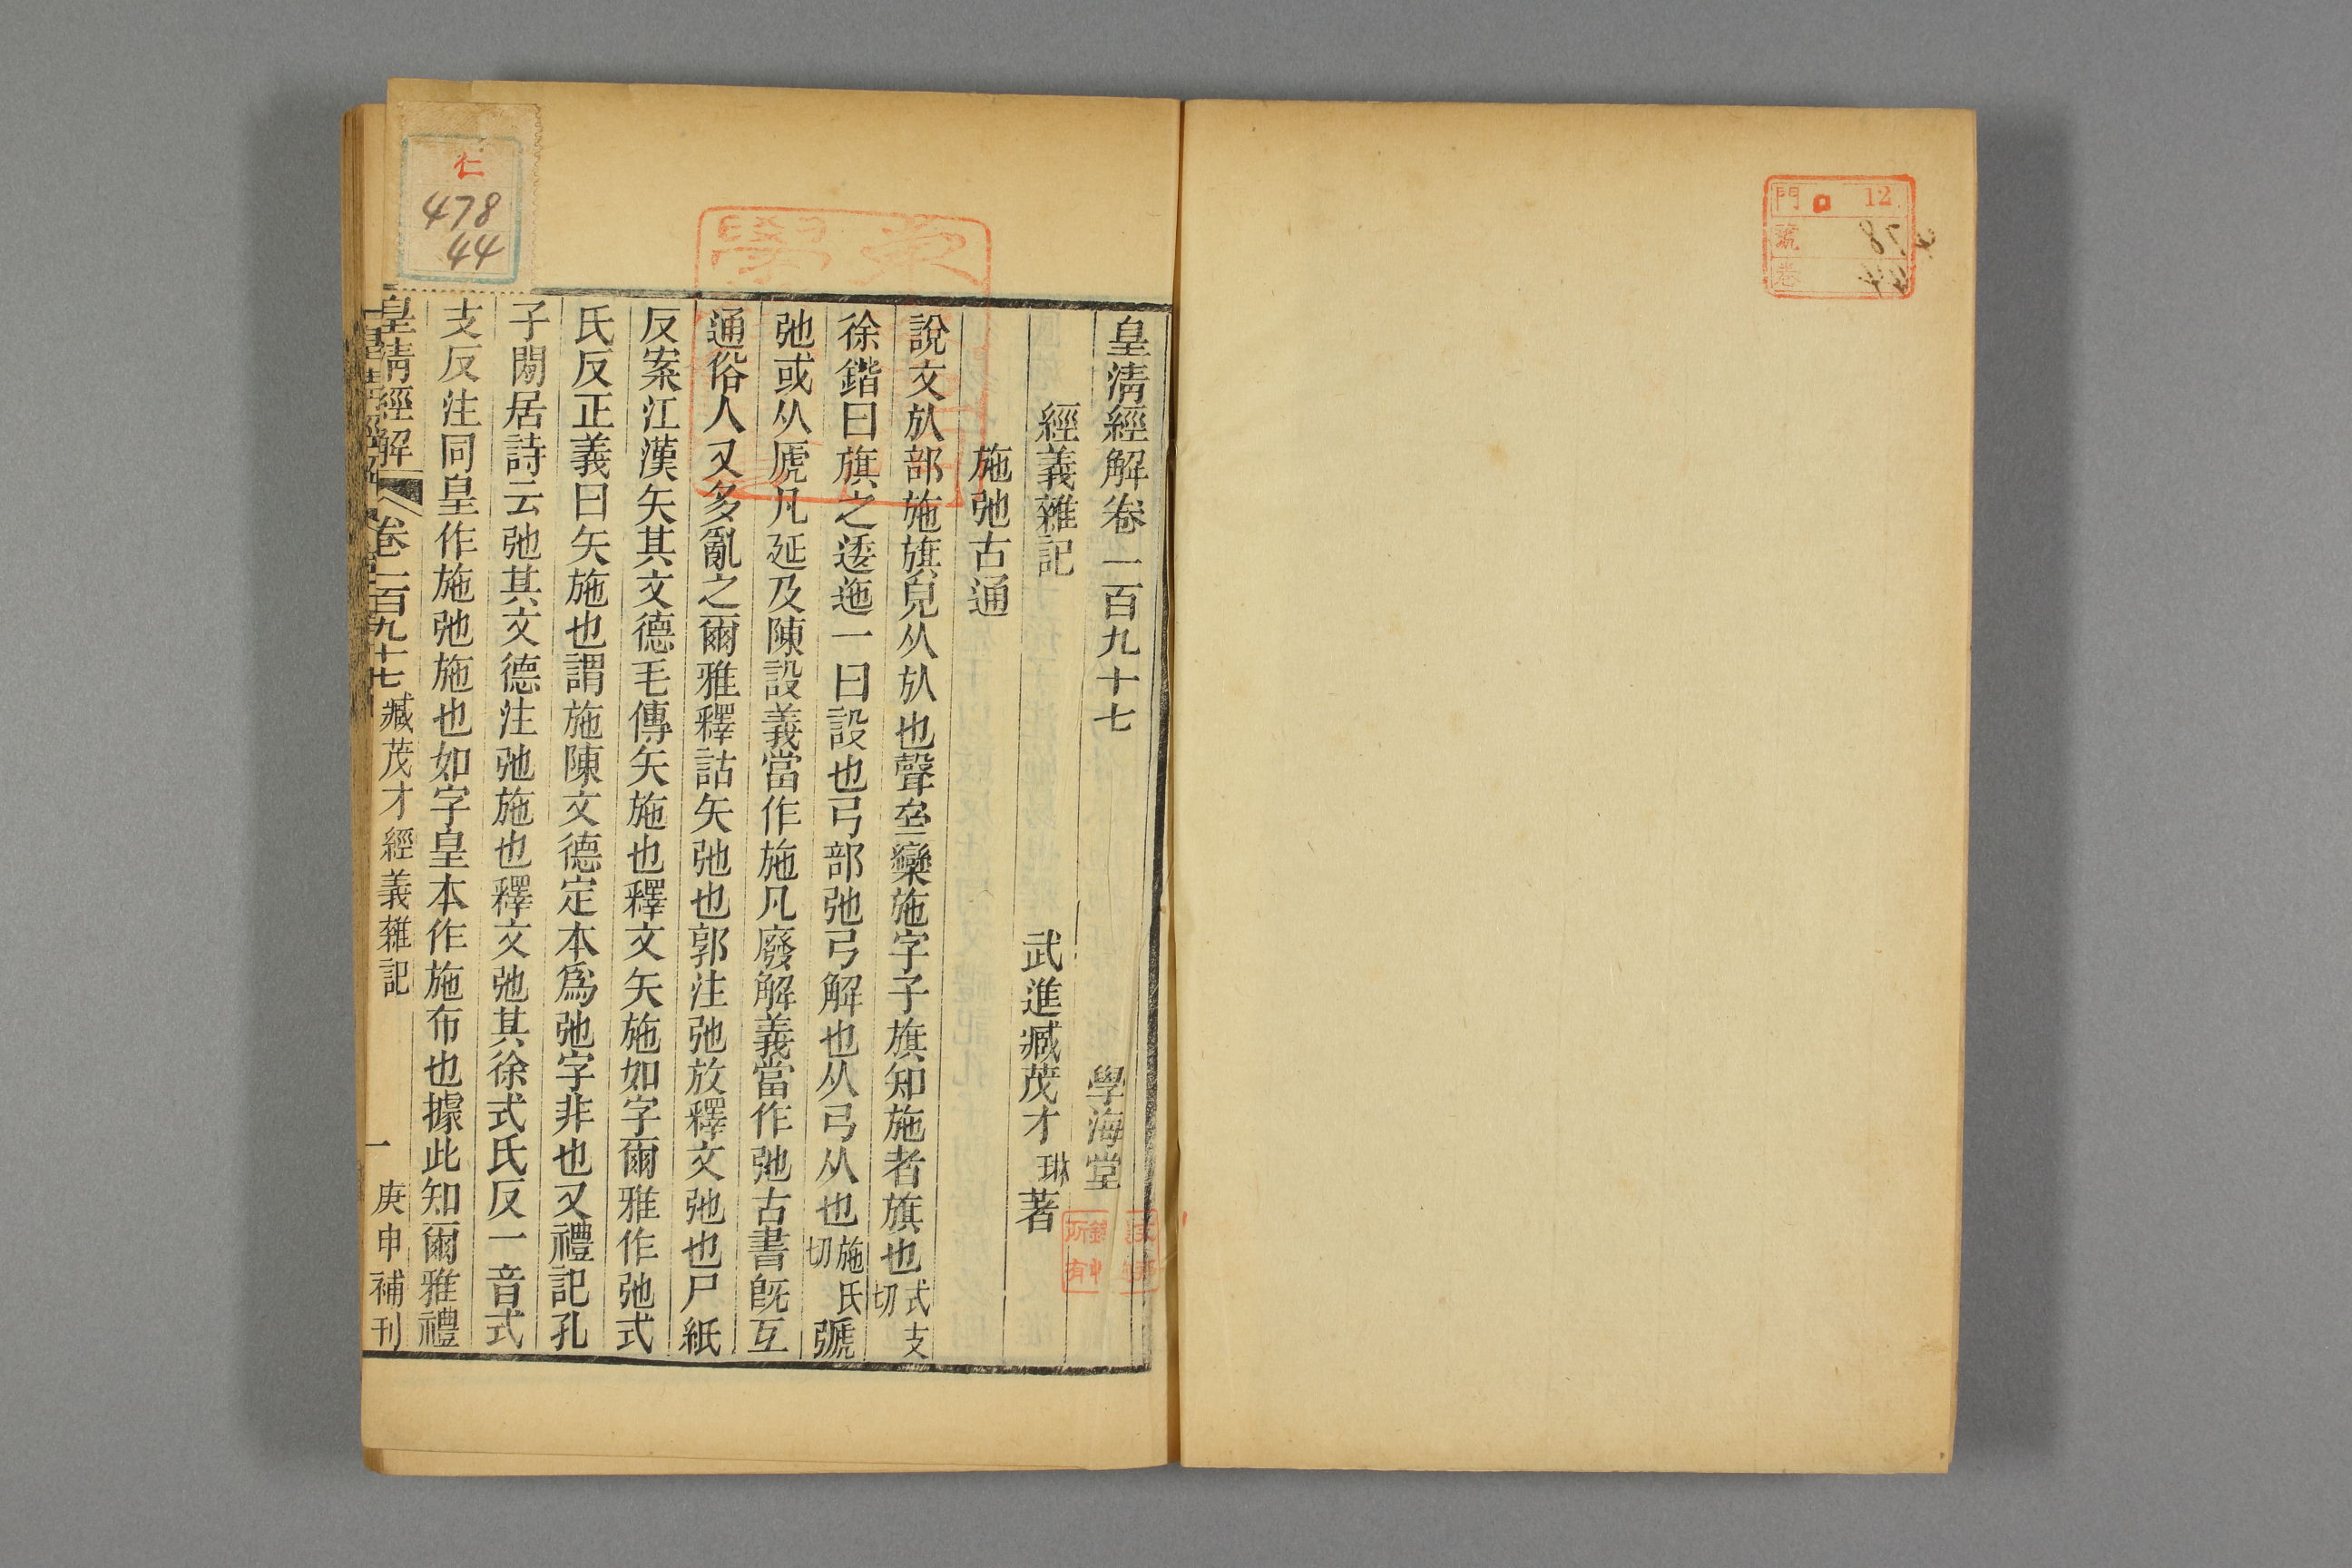 門 12
號 878
卷 44
皇清經解卷一百九十七 學海堂
經義雜記 武進臧茂才琳著
施弛古通
說文㫃部施旗皃从㫃也聲亝欒施字子旗知施者旗也式支切
徐鍇曰旗之逶迤一曰設也弓部弛弓解也从弓从也施氏切𢐋
弛或从虒凡延及陳設義當作施凡廢解義當作弛古書旣互
通俗人又多亂之爾雅釋詁矢弛也郭注弛放釋文弛也尸紙
反案江漢矢其文德毛傳矢施也釋文矢施如字爾雅作弛式
氏反正義曰矢施也謂施陳文德定本爲弛字非也又禮記孔
子閒居詩云弛其文德注弛施也釋文弛其徐式氏反一音式
支反注同皇作施弛施也如字皇本作施布也據此知爾雅禮
皇清經解 卷一百九十七 臧茂才經義雜記 一 庚申補刊
仁
478
44